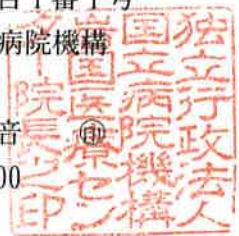 病院機構
音 ㊞
00
独立行政法人
国立病院機構
岩国医療セン
ター院長之印